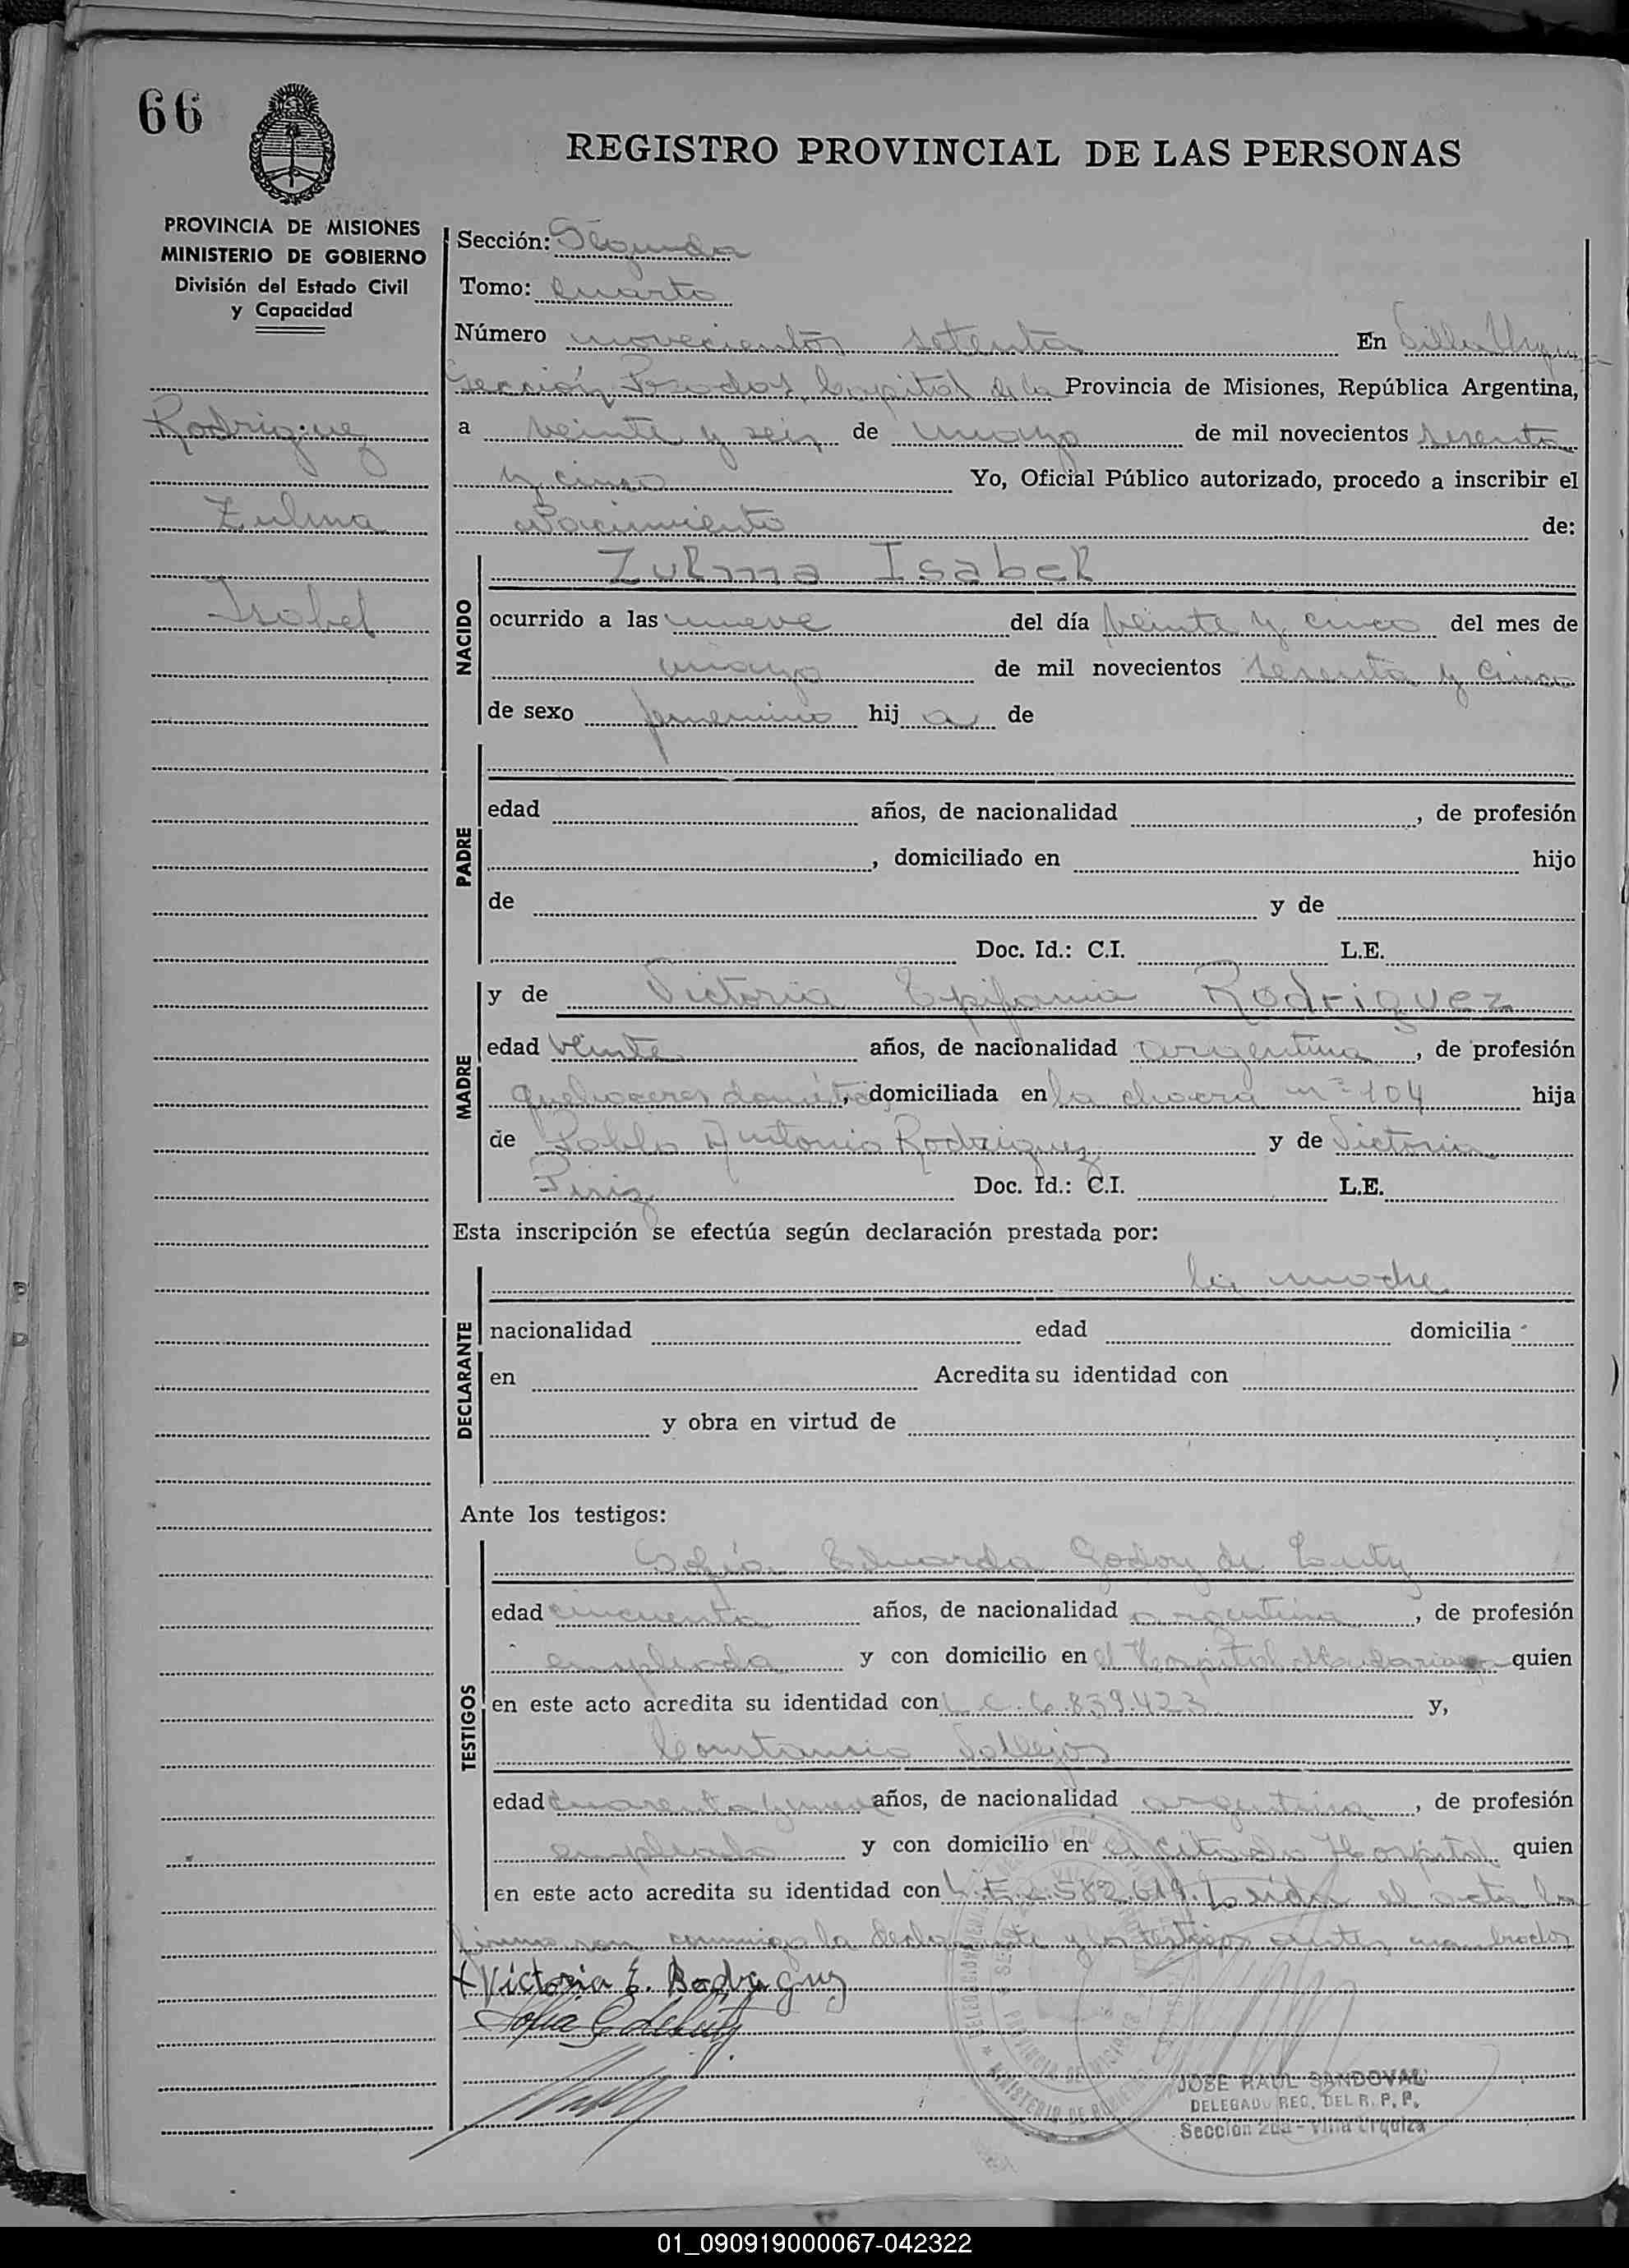 66
REGISTRO PROVINCIAL DE LAS PERSONAS
PROVINCIA DE MISIONES
MINISTERIO DE GOBIERNO
División del Estado Civil
y Capacidad
Rodriguez
Zulma
Isabel
Sección: Segunda
Tomo: Cuarto
Número novecientos setenta En Villa Urquiza
Sección Posadas, Capital de la Provincia de Misiones, República Argentina,
a veinte y seis de mayo de mil novecientos sesenta
y cinco Yo, Oficial Público autorizado, procedo a inscribir el
Nacimiento de:
NACIDO
Zulma Isabel
ocurrido a las nueve del día veinte y cinco del mes de
mayo de mil novecientos sesenta y cinco
de sexo femenino hij a de
PADRE
edad años, de nacionalidad , de profesión
, domiciliado en hijo
de y de
Doc. Id.: C.I. L.E.
MADRE
y de Victoria Epifania Rodriguez
edad veinte años, de nacionalidad argentina, de profesión
quehaceres , domiciliada en la chacra nº 104 hija
de Pablo Antonio Rodriguez y de Victoria
Piris Doc. Id.: C.I. L.E.
Esta inscripción se efectúa según declaración prestada por:
DECLARANTE
la madre
nacionalidad edad domicilia
en Acredita su identidad con
y obra en virtud de
Ante los testigos:
TESTIGOS
Sofía Eduarda Godoy de Luty
edad cincuenta años, de nacionalidad argentina, de profesión
empleada y con domicilio en el Hospital Madariaga quien
en este acto acredita su identidad con L.C. 6.839.423 y,
Constancio Vallejos
edad cuarenta y nueve años, de nacionalidad argentina, de profesión
empleado y con domicilio en el citado Hospital quien
en este acto acredita su identidad con L.E. 582.619. Leída el acta la
firman conmigo la declarante y los testigos antes nombrados
Victoria E. Rodriguez
Sofia G de Luty
JOSE RAUL SANDOVAL
DELEGADO REG. DEL R. P. P.
Sección 2da - Villa Urquiza
01_090919000067-042322